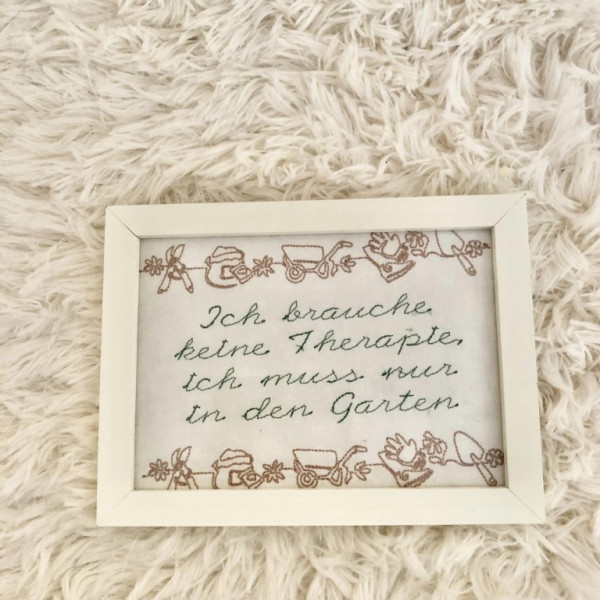 Ich brauche
keine Therapie
ich muss nur
in den Garten